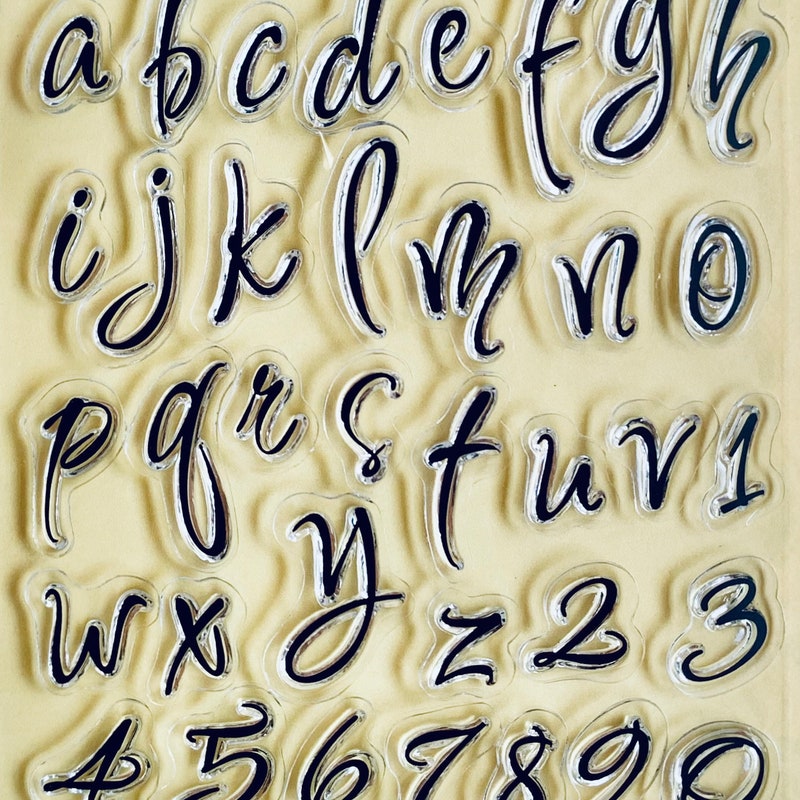 a b c d e f g h
i j k l m n o
p q r s t u v 1
w x y z 2 3
4 5 6 7 8 9 0